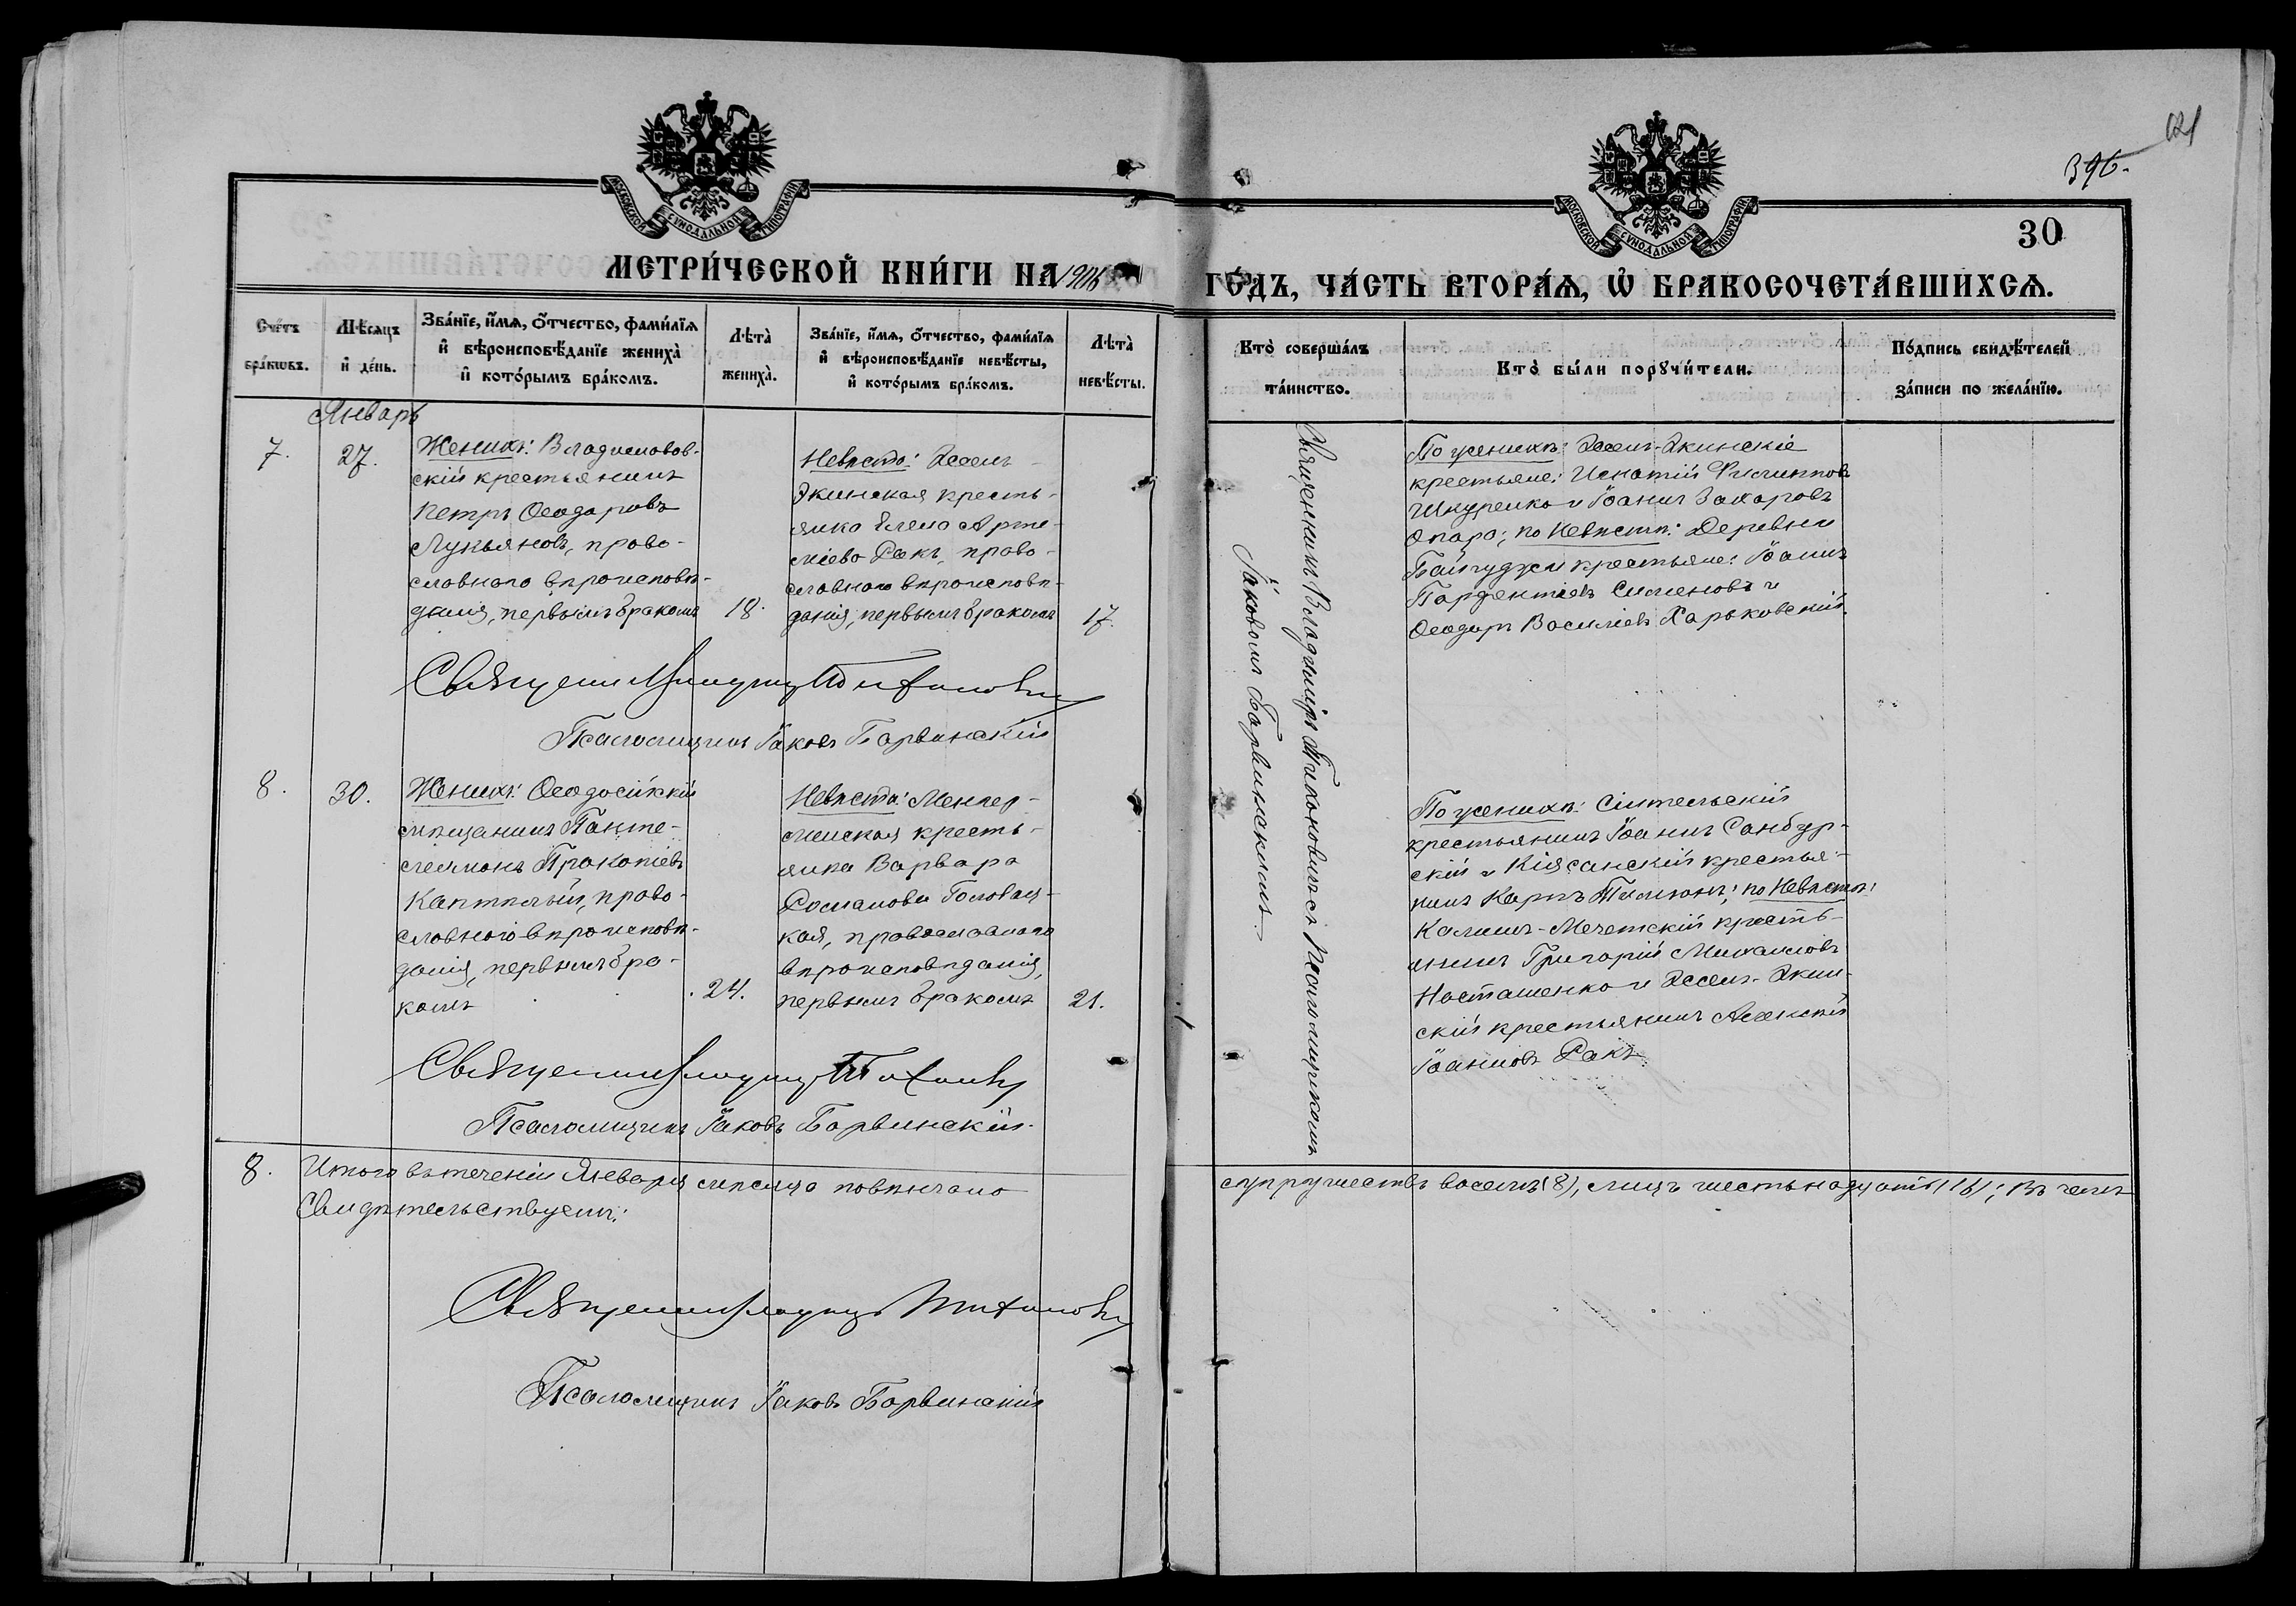 021
396.
30
МОСКОВСКОЙ СѴНОДАЛЬНОЙ ТИПОГРАФІИ
МОСКОВСКОЙ СѴНОДАЛЬНОЙ ТИПОГРАФІИ
МЕТРИ́ЧЕСКОЙ КНИ́ГИ НА 1906
ГО́ДЪ, ЧА́СТЬ ВТОРА́Ѧ, Ѽ БРАКОСОЧЕТА́ВШИХСѦ.
Сче́тъ
бра́кѡвъ.
Мѣ́сѧцъ
и҆ де́нь.
Зва́нїе, и҆́мѧ, ѻ҆́тчество, фами́лїѧ
и҆ вѣроисповѣ́данїе жениха̀
и҆ кото́рымъ бра́комъ.
Лѣта̀
жениха̀.
Зва́нїе, и҆́мѧ, ѻ҆́тчество, фами́лїѧ
и҆ вѣроисповѣ́данїе невѣ́сты,
и҆ кото́рымъ бра́комъ.
Лѣта̀
невѣ́сты.
Кто̀ соверша́лъ
та́инство.
Кто̀ бы́ли порꙋчи́тели.
По́дпись свидѣ́телей
за́писи по жела́нїю.
Январь
7.
27.
Женихъ: Владиславов-
скій крестьянинъ
Петръ Ѳеодоровъ
Лукьяновъ, право-
славнаго вѣроисповѣ-
данія, первымъ бракомъ
18.
Невѣста: Джелл-
Экинская кресть-
янка Елена Арте-
міева Ракъ, право-
славнаго вѣроисповѣ-
данія, первымъ бракомъ
17.
Священникъ Владиміръ Тихоновичъ съ Псаломщикомъ
Іаковомъ Барвинскимъ.
По женихѣ: Экинскіе
крестьяне: Игнатій Филипповъ
Шкуренко и Іоаннъ Захаровъ
Опара; по невѣстѣ: Деревни
Байгуджи крестьяне: Іоаннъ
Парфентіевъ Симоновъ и
Ѳеодоръ Василіевъ Харьковскій.
Священникъ Тихонович
Псаломщикъ Іаковъ Барвинскій
8.
30.
Женихъ: Ѳеодосійскій
мѣщанинъ Панте-
леимонъ Прокопіевъ
право-
славнаго вѣроисповѣ-
данія, первымъ бра-
комъ
24.
Невѣста:
кресть-
янка Варвара
Романова
кая, православнаго
вѣроисповѣданія,
первымъ бракомъ
21.
По женихѣ:
крестьянинъ Іоаннъ Санбур-
скій и крестья-
нинъ Карпъ по невѣстѣ:
Калинъ-Мечетскій кресть-
янинъ Григорій Михаиловъ
Носташенко и Экин-
скій крестьянинъ Алексій
Іоанновъ Ракъ.
Священникъ
Псаломщикъ Іаковъ Барвинскій.
8. Итого въ теченіи Января мѣсяца повѣнчано
супружествъ восемь (8), лицъ шестьнадцать (16); въ чемъ
Свидѣтельствуемъ:
Священникъ Тихонович
Псаломщикъ Іаковъ Барвинскій